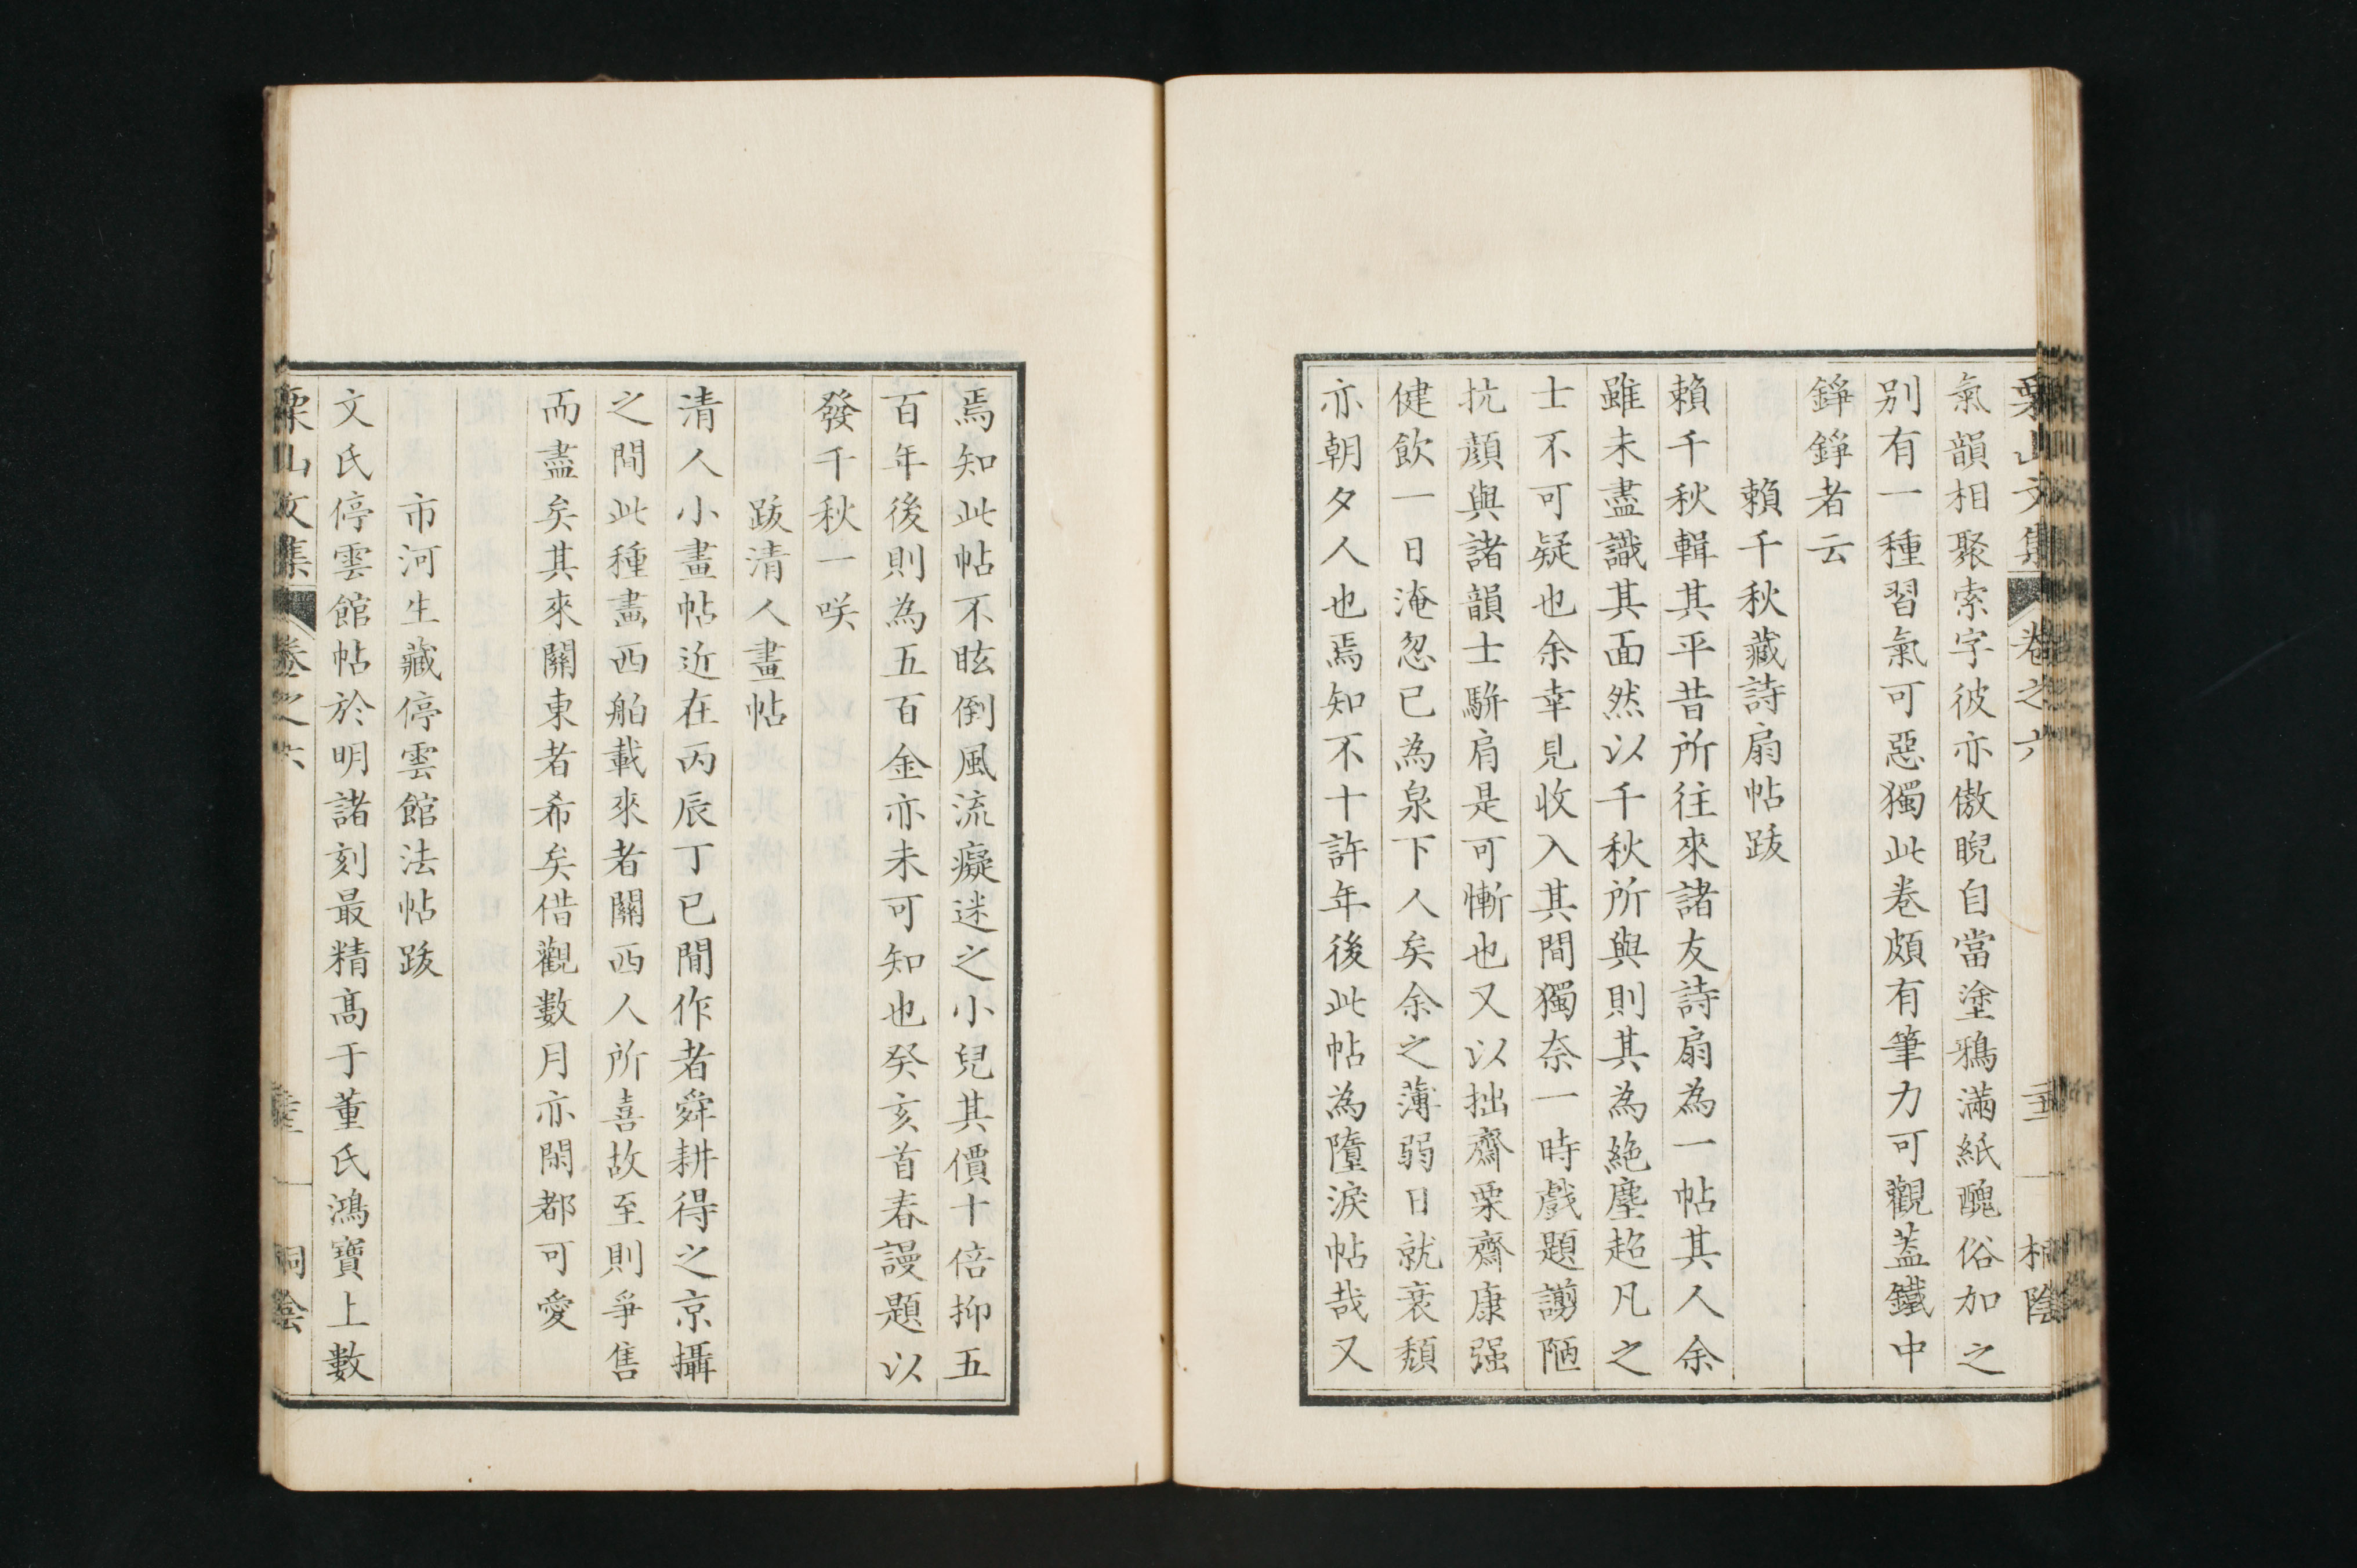 栗山文集 卷之六 桐陰
氣韻相聚索字彼亦傲睨自當塗鴉滿紙醜俗加之
别有一種習氣可惡獨此卷頗有筆力可觀蓋鐵中
錚錚者云
賴千秋藏詩扇帖跋
賴千秋輯其平昔所往來諸友詩扇為一帖其人余
雖未盡識其面然以千秋所與則其為絶塵超凡之
士不可疑也余幸見收入其間獨奈一時戲題謭陋
抗顔與諸韻士駢肩是可慚也又以拙齋栗齋康强
健飲一日淹忽已為泉下人矣余之薄弱日就衰頽
亦朝夕人也焉知不十許年後此帖為墮淚帖哉又
焉知此帖不眩倒風流癡迷之小兒其價十倍抑五
百年後則為五百金亦未可知也癸亥首春謾題以
發千秋一咲
跋清人畫帖
清人小畫帖近在丙辰丁巳間作者舜耕得之京攝
之間此種畵西舶載來者關西人所喜故至則爭售
而盡矣其來關東者希矣借觀數月亦閑都可愛
市河生藏停雲館法帖跋
文氏停雲館帖於明諸刻最精髙于董氏鴻寶上數
栗山文集 卷之六 桐陰